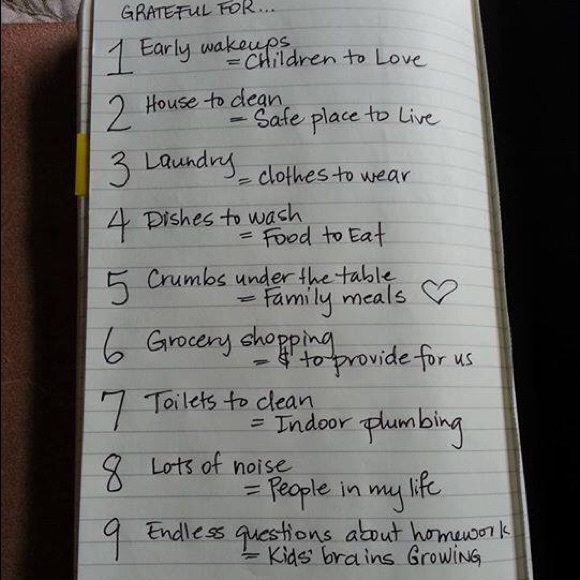 GRATEFUL FOR...
1 Early wakeups
= Children to Love
2 House to clean
= Safe place to Live
3 Laundry
= clothes to wear
4 Dishes to wash
= Food to Eat
5 Crumbs under the table
= Family meals ♡
6 Grocery shopping
= $ to provide for us
7 Toilets to clean
= Indoor plumbing
8 Lots of noise
= People in my life
9 Endless questions about homework
= Kids' brains GROWING